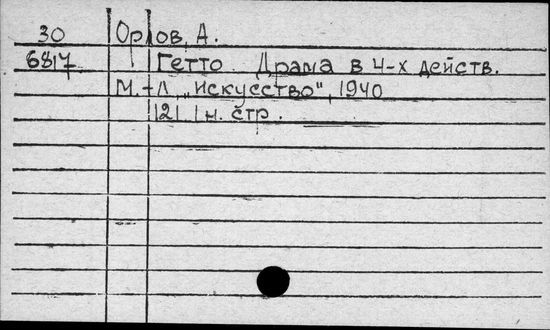 30 Орлов, А.
6817 Гетто Драма в 4-х действ.
М.-Л, „Искусство", 1940
121 1 н. стр.